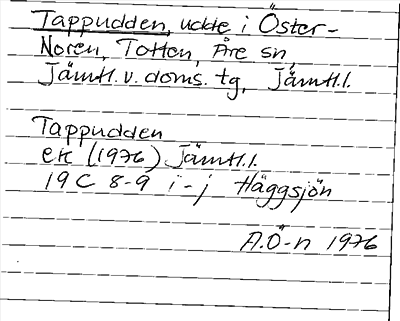 Tappudden, udde i Öster-
Noren, Totten, Åre sn,
Jämtl. v. doms. tg, Jämtl.l.
Tappudden
ek (1976) Jämtl.l.
19 C 8-9 i-j Häggsjön
A.Ö-n 1976